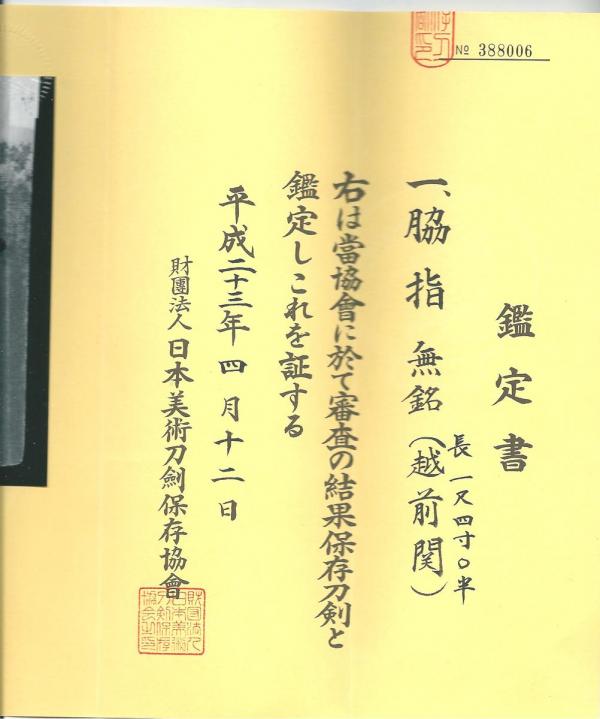 № 388006
鑑定書
一、脇指 無銘(越前関)
長一尺四寸〇半
右は當協會に於て審査の結果保存刀剣と
鑑定しこれを証する
平成二十三年四月十二日
財團法人日本美術刀劍保存協會
財団法人日本美術刀剣保存協会之印